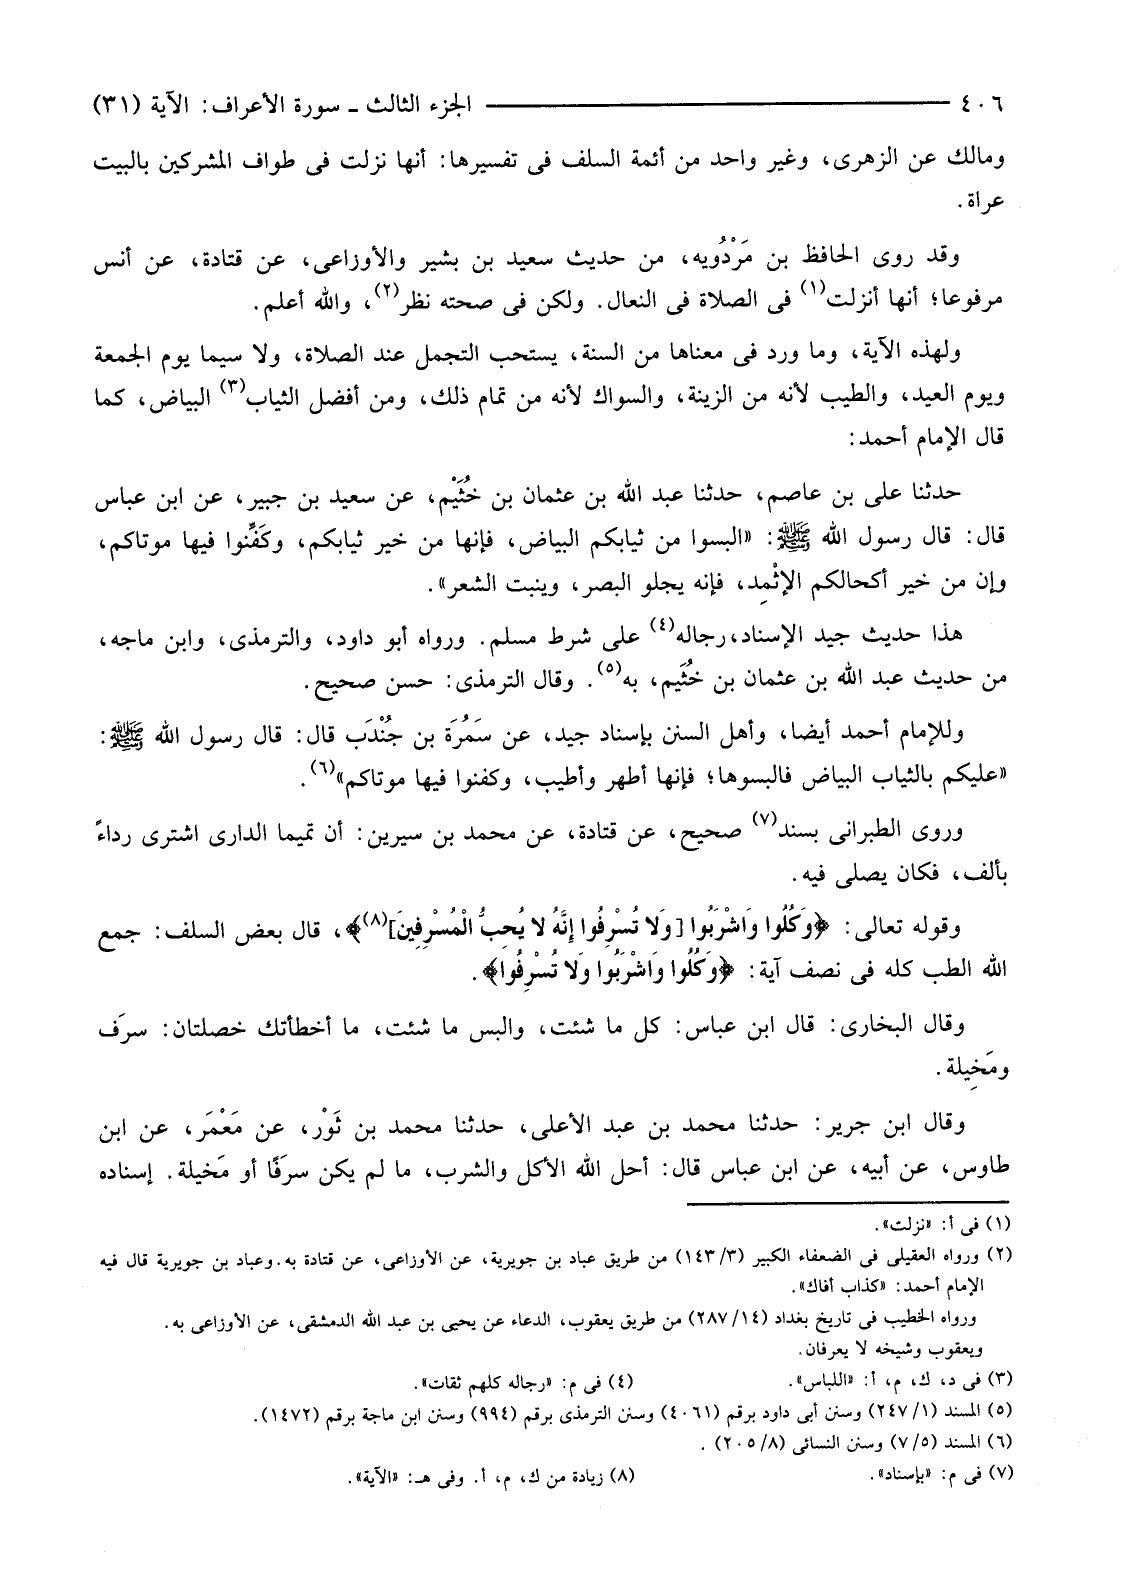 ٤٠٦ ــــــــــــ الجزء الثالث ـ سورة الأعراف: الآية (٣١)
ومالك عن الزهرى، وغير واحد من أئمة السلف فى تفسيرها: أنها نزلت فى طواف المشركين بالبيت
عراة.
وقد روى الحافظ بن مَرْدُويه، من حديث سعيد بن بشير والأوزاعى، عن قتادة، عن أنس
مرفوعا؛ أنها أنزلت(١) فى الصلاة فى النعال. ولكن فى صحته نظر(٢)، والله أعلم.
ولهذه الآية، وما ورد فى معناها من السنة، يستحب التجمل عند الصلاة، ولا سيما يوم الجمعة
ويوم العيد، والطيب لأنه من الزينة، والسواك لأنه من تمام ذلك، ومن أفضل الثياب(٣) البياض، كما
قال الإمام أحمد:
حدثنا على بن عاصم، حدثنا عبد الله بن عثمان بن خُثَيْم، عن سعيد بن جبير، عن ابن عباس
قال: قال رسول الله ﷺ: «البسوا من ثيابكم البياض، فإنها من خير ثيابكم، وكَفِّنوا فيها موتاكم،
وإن من خير أكحالكم الإثْمِد، فإنه يجلو البصر، وينبت الشعر».
هذا حديث جيد الإسناد،رجاله(٤) على شرط مسلم. ورواه أبو داود، والترمذى، وابن ماجه،
من حديث عبد الله بن عثمان بن خُثَيم، به(٥). وقال الترمذى: حسن صحيح.
وللإمام أحمد أيضا، وأهل السنن بإسناد جيد، عن سَمُرَة بن جُنْدَب قال: قال رسول الله ﷺ:
«عليكم بالثياب البياض فالبسوها؛ فإنها أطهر وأطيب، وكفنوا فيها موتاكم»(٦).
وروى الطبرانى بسند(٧) صحيح، عن قتادة، عن محمد بن سيرين: أن تميما الدارى اشترى رداءً
بألف، فكان يصلى فيه.
وقوله تعالى: ﴿وَكُلُوا وَاشْرَبُوا [وَلا تُسْرِفُوا إِنَّهُ لا يُحِبُّ الْمُسْرِفِينَ](٨)﴾، قال بعض السلف: جمع
الله الطب كله فى نصف آية: ﴿وَكُلُوا وَاشْرَبُوا وَلا تُسْرِفُوا﴾.
وقال البخارى: قال ابن عباس: كل ما شئت، والبس ما شئت، ما أخطأتك خصلتان: سرَف
ومَخِيلة.
وقال ابن جرير: حدثنا محمد بن عبد الأعلى، حدثنا محمد بن ثَوْر، عن مَعْمَر، عن ابن
طاوس، عن أبيه، عن ابن عباس قال: أحل الله الأكل والشرب، ما لم يكن سرَفًا أو مَخيلة. إسناده
(١) فى أ: «نزلت».
(٢) ورواه العقيلى فى الضعفاء الكبير (٣/ ١٤٣) من طريق عباد بن جويرية، عن الأوزاعى، عن قتادة به.وعباد بن جويرية قال فيه
الإمام أحمد: «كذاب أفاك».
ورواه الخطيب فى تاريخ بغداد (١٤/ ٢٨٧) من طريق يعقوب، الدعاء عن يحيى بن عبد الله الدمشقى، عن الأوزاعى به.
ويعقوب وشيخه لا يعرفان.
(٣) فى د، ك، م، أ: «اللباس». (٤) فى م: «رجاله كلهم ثقات».
(٥) المسند (١/ ٢٤٧) وسنن أبى داود برقم (٤٠٦١) وسنن الترمذى برقم (٩٩٤) وسنن ابن ماجة برقم (١٤٧٢).
(٦) المسند (٥/ ٧) وسنن النسائى (٨/ ٢٠٥) .
(٧) فى م: «بإسناد». (٨) زيادة من ك، م، أ. وفى هـ: «الآية».